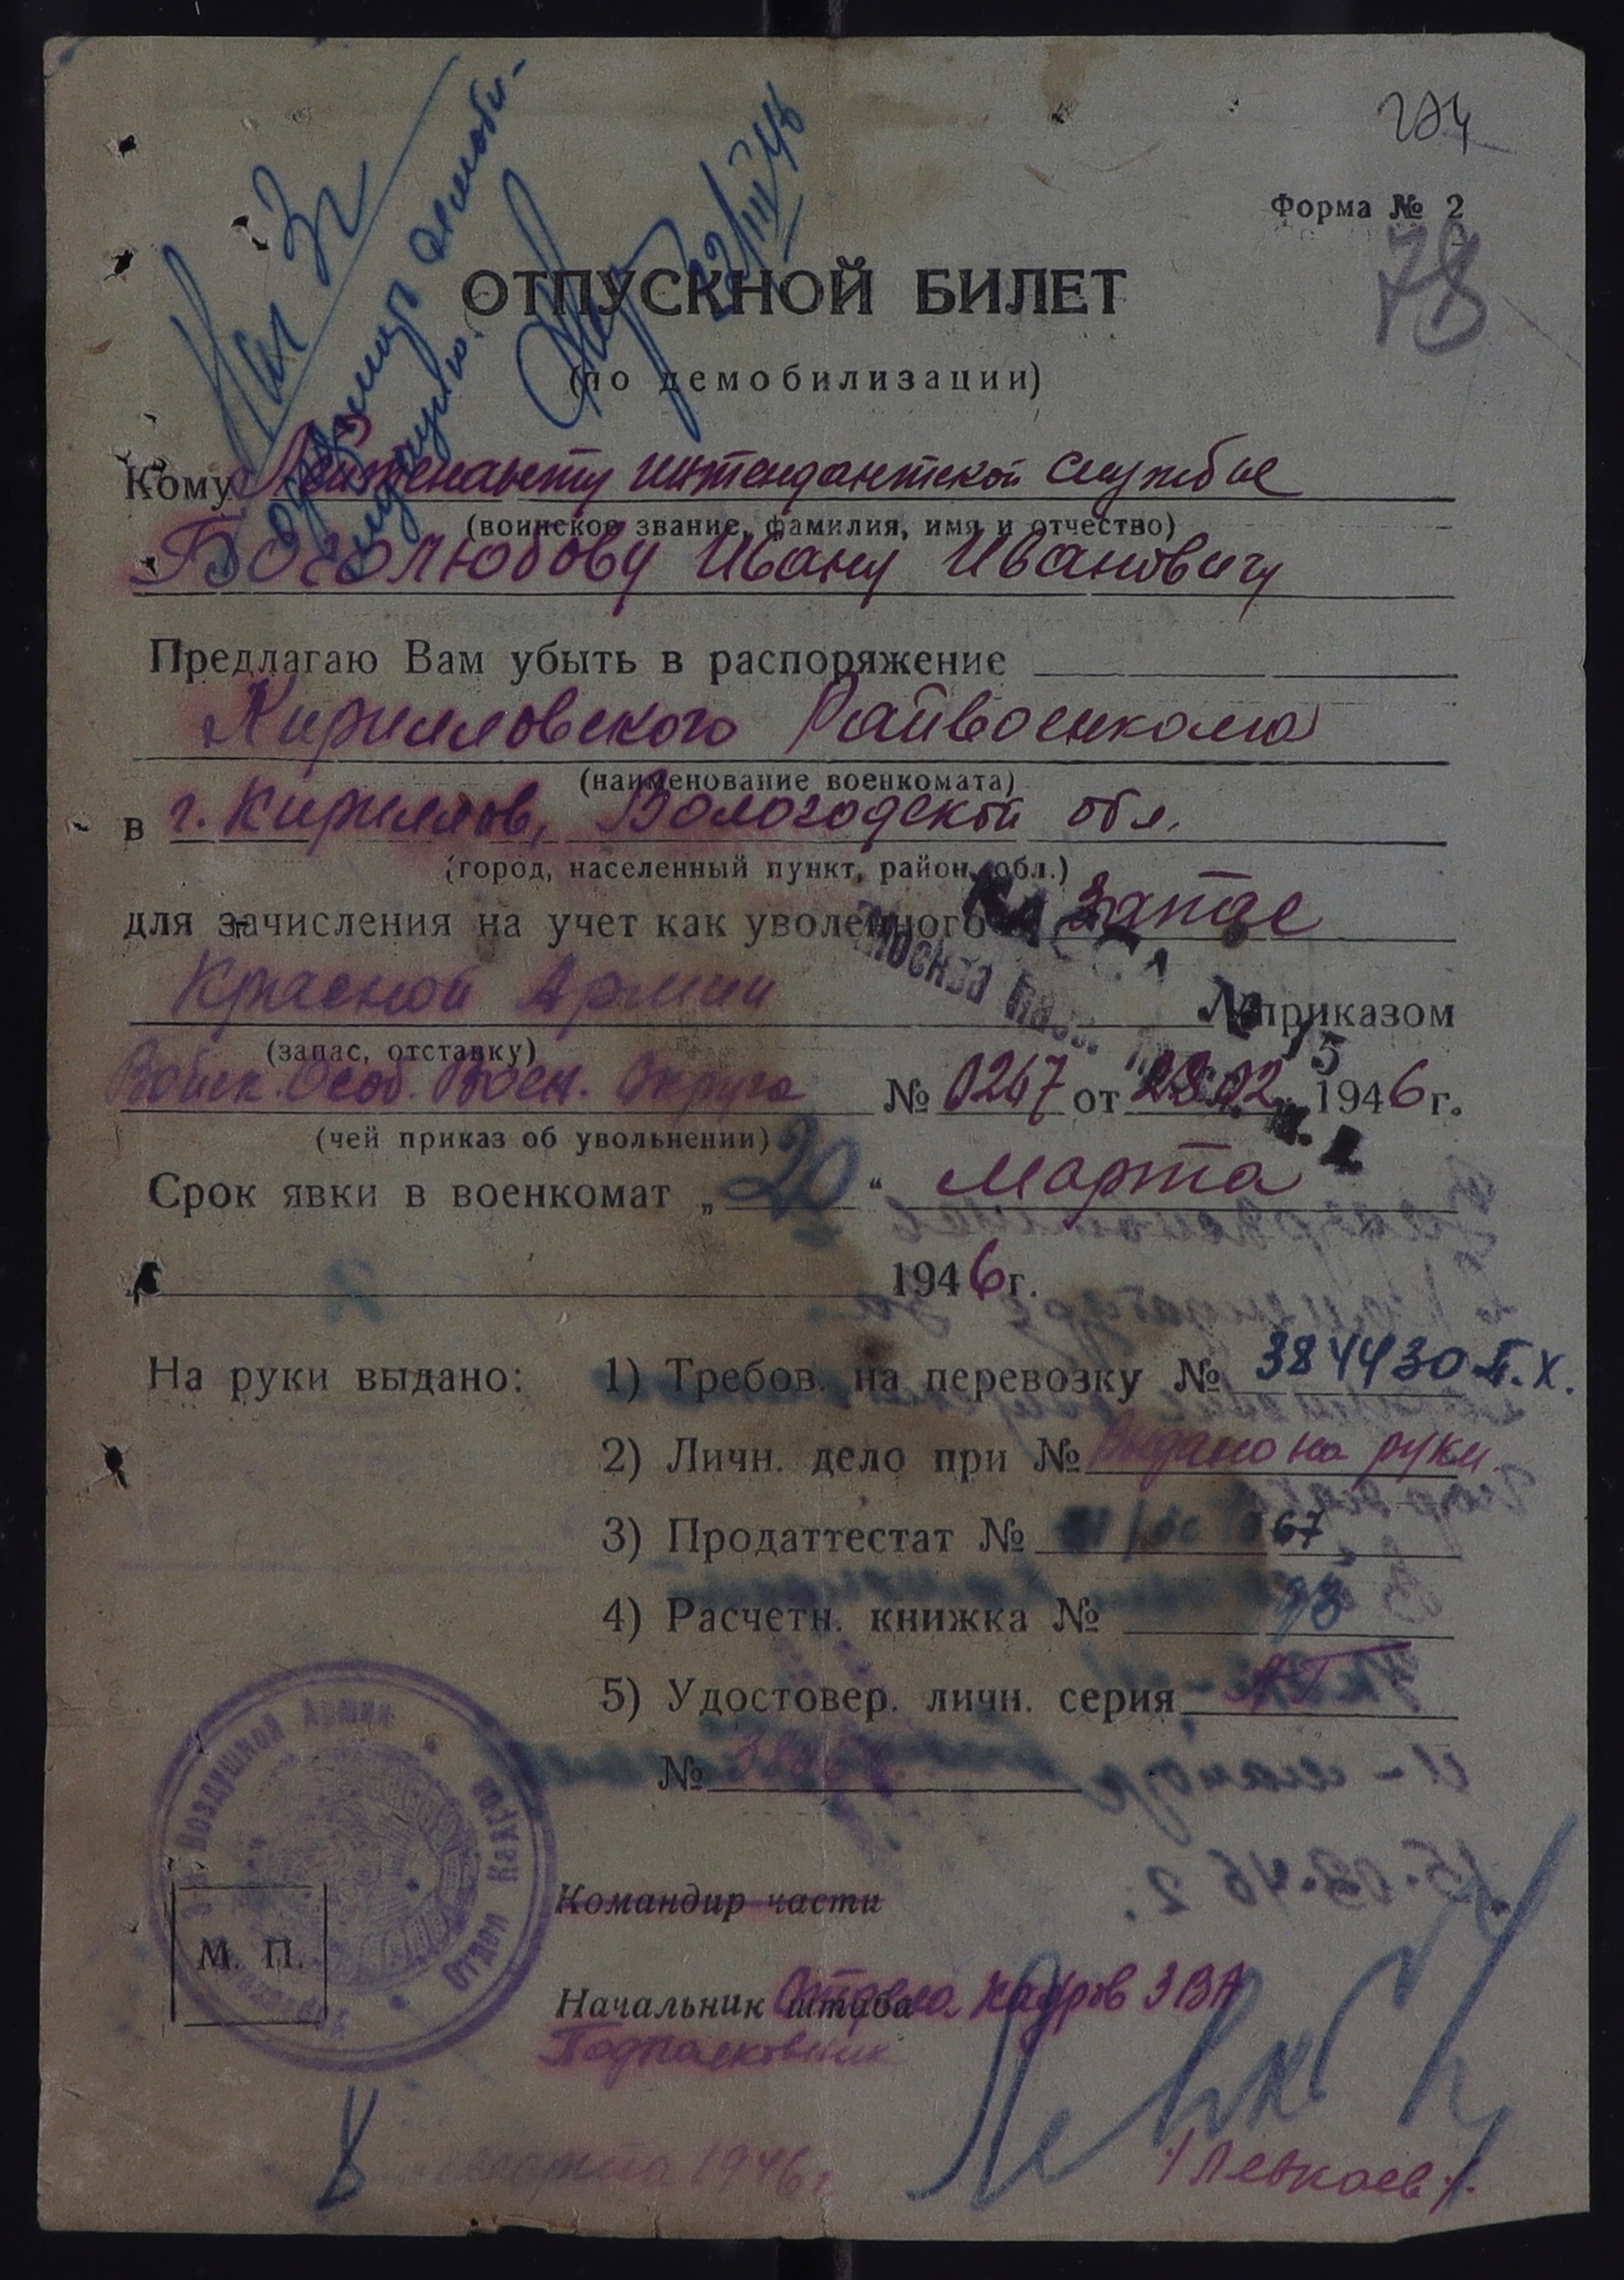 274
Форма № 2
78
Нач 3ч
22/III 46
ОТПУСКНОЙ БИЛЕТ
(по демобилизации)
Кому Лейтенанту интендантской службы
(воинское звание, фамилия, имя и отчество)
Боголюбову Ивану Ивановичу
Предлагаю Вам убыть в распоряжение
Кирилловского Райвоенкома
(наименование военкомата)
в г. Кириллов, Вологодской обл.
(город, населенный пункт, район, обл.)
для зачисления на учет как уволенного в запас
Красной Армии приказом
(запас, отставку)
Войск. Особ. Воен. Округа № 0267 от 28.02 1946 г.
(чей приказ об увольнении)
КАССА
Москва пасс.
Срок явки в военкомат „20“ марта
1946 г.
На руки выдано: 1) Требов. на перевозку № 384430 П.Х.
2) Личн. дело при № Выдано на руки.
3) Продаттестат № 67
4) Расчетн. книжка № 73
5) Удостовер. личн. серия АГ
№
Воздушной Армии
Отдел кадров
М. П.
Командир части
Начальник штаба Отдела кадров 3 ВА
Подполковник
/Левкоев/.
8 марта 1946 г.